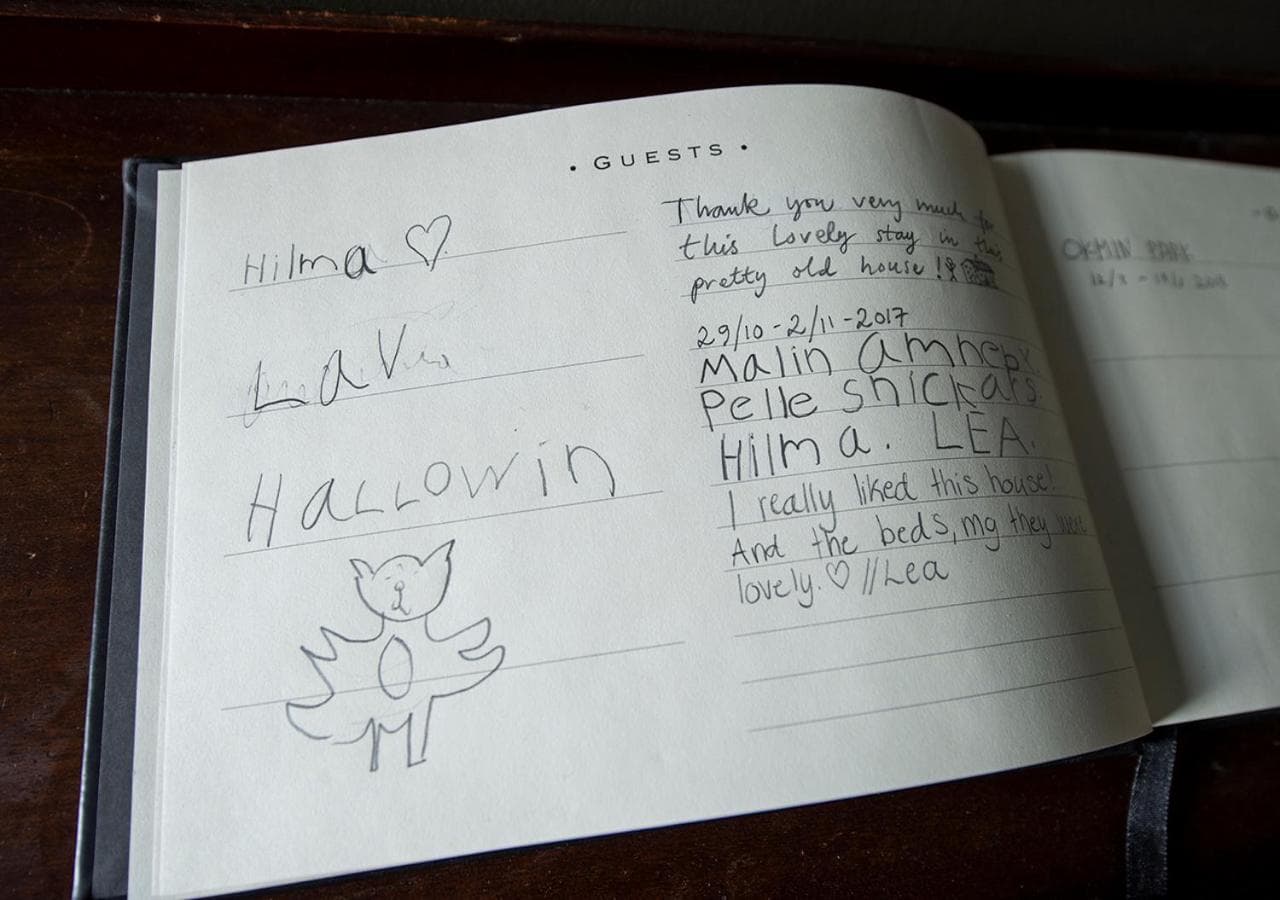 • GUESTS •
Hilma ♡
LaV
HaLLOWin
Thank you very much for
this Lovely stay in this
pretty old house!
29/10 - 2/11 - 2017
Malin
Pelle Snickars
Hilma. LEA.
I really liked this house!
And the beds, mg they were
lovely. ♡ //Lea
OKMIN PARK